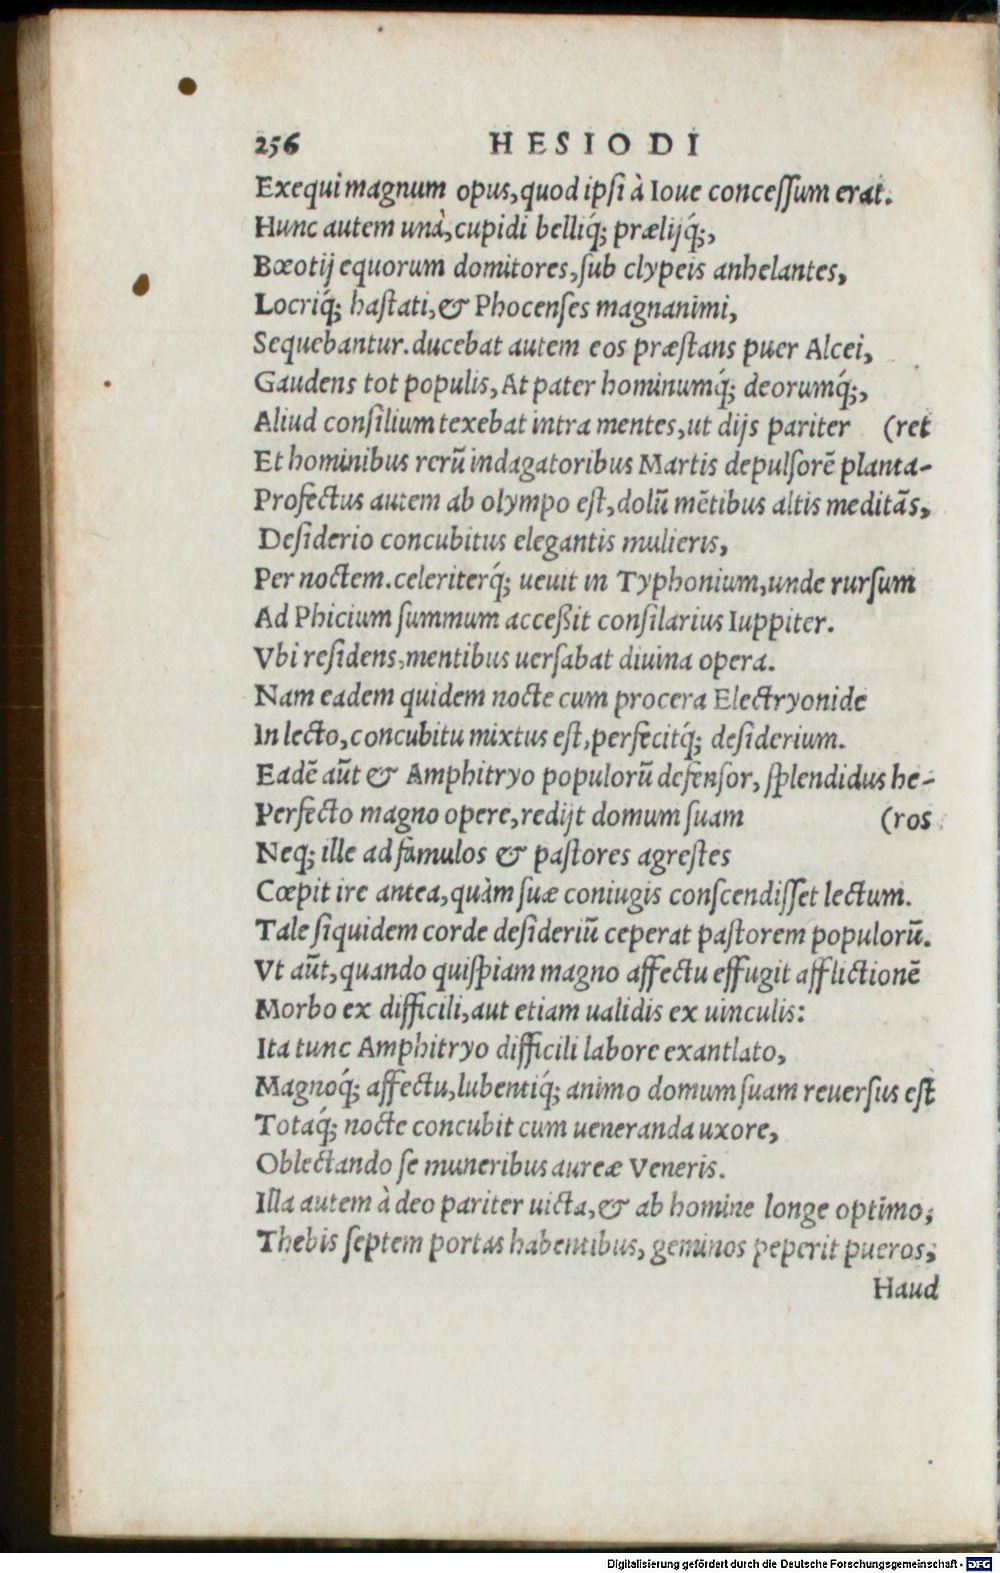 256 HESIODI
Exequi magnum opus, quod ipsi à Ioue concessum erat.
Hunc autem unà, cupidi belliq́; prælijq́;,
Bœotij equorum domitores, sub clypeis anhelantes,
Locriq́; hastati, & Phocenses magnanimi,
Sequebantur. ducebat autem eos præstans puer Alcei,
Gaudens tot populis, At pater hominumq́; deorumq́;,
Aliud consilium texebat intra mentes, ut dijs pariter (ret
Et hominibus rerũ indagatoribus Martis depulsorẽ planta-
Profectus autem ab olympo est, dolũ mẽtibus altis meditãs,
Desiderio concubitus elegantis mulieris,
Per noctem. celeriterq́; ueuit in Typhonium, unde rursum
Ad Phicium summum acceßit consilarius Iuppiter.
Vbi residens, mentibus uersabat diuina opera.
Nam eadem quidem nocte cum procera Electryonide
In lecto, concubitu mixtus est, perfecitq́; desiderium.
Eadẽ aũt & Amphitryo populorũ defensor, splendidus he-
Perfecto magno opere, redijt domum suam (ros
Neq; ille ad famulos & pastores agrestes
Cœpit ire antea, quàm suæ coniugis conscendisset lectum.
Tale siquidem corde desideriũ ceperat pastorem populorũ.
Vt aũt, quando quispiam magno affectu effugit afflictionẽ
Morbo ex difficili, aut etiam ualidis ex uinculis:
Ita tunc Amphitryo difficili labore exantlato,
Magnoq́; affectu, lubentiq́; animo domum suam reuersus est
Totaq́; nocte concubit cum ueneranda uxore,
Oblectando se muneribus aureæ Veneris.
Illa autem à deo pariter uicta, & ab homine longe optimo,
Thebis septem portas habentibus, geminos peperit pueros,
Haud
Digitalisierung gefördert durch die Deutsche Forschungsgemeinschaft - DFG